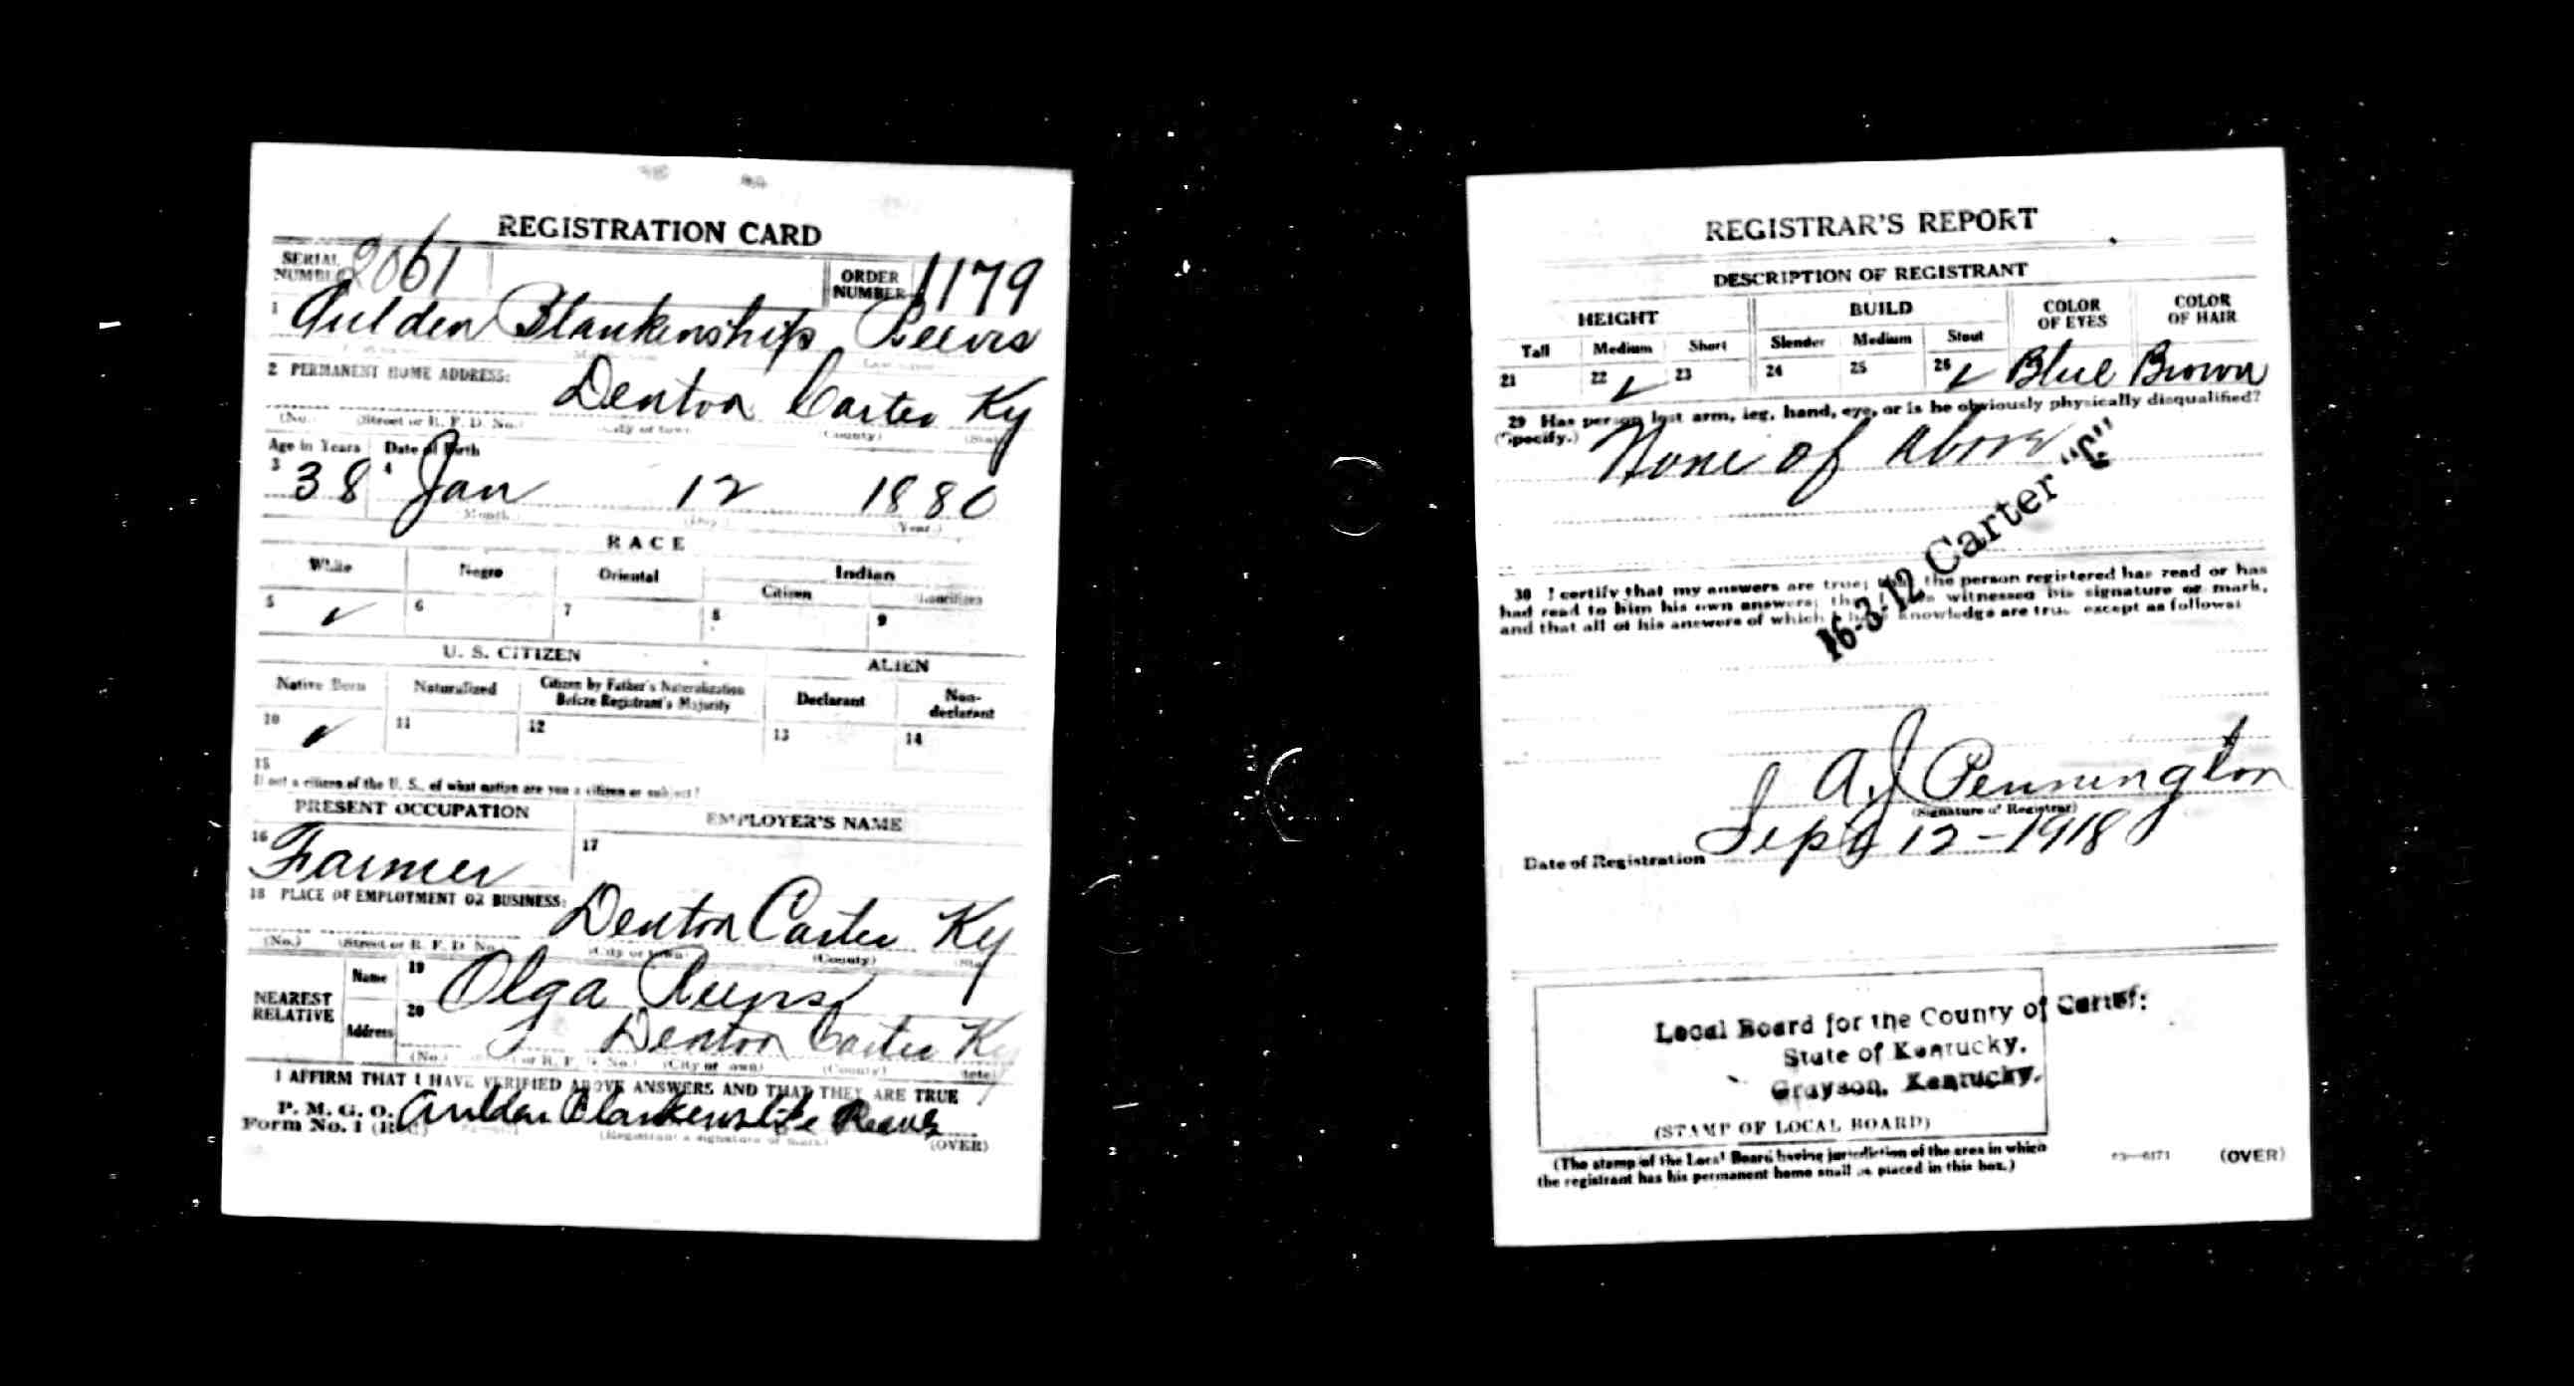 REGISTRATION CARD
SERIAL NUMBER 2061
ORDER NUMBER 1179
1 Aulden Blankenship Reeves
2 PERMANENT HOME ADDRESS:
Denton Carter Ky
(No.) (Street or R. F. D. No.) (City or town) (County) (State)
Age in Years Date of Birth
3 38 4 Jan 12 1880
(Month.) (Day.) (Year.)
RACE
White Negro Oriental Indian
Citizen Noncitizen
5 ✓ 6 7 8 9
U. S. CITIZEN ALIEN
Native Born Naturalized Citizen by Father's Naturalization Before Registrant's Majority Declarant Non-declarant
10 ✓ 11 12 13 14
15
If not a citizen of the U. S., of what nation are you a citizen or subject?
PRESENT OCCUPATION EMPLOYER'S NAME
16 Farmer 17
18 PLACE OF EMPLOYMENT OR BUSINESS:
Denton Carter Ky
(No.) (Street or R. F. D. No.) (City or town) (County) (State)
NEAREST RELATIVE
Name 19 Olga Reeves
Address 20 Denton Carter Ky
(No.) (Street or R. F. D. No.) (City or town) (County) (State)
I AFFIRM THAT I HAVE VERIFIED ABOVE ANSWERS AND THAT THEY ARE TRUE
P. M. G. O.
Form No. 1 (Red) Aulden Blankenship Reeves
(Registrant's signature or mark) (OVER)
REGISTRAR'S REPORT
DESCRIPTION OF REGISTRANT
HEIGHT BUILD COLOR OF EYES COLOR OF HAIR
Tall Medium Short Slender Medium Stout
21 22 ✓ 23 24 25 26 ✓ Blue Brown
29 Has person lost arm, leg, hand, eye, or is he obviously physically disqualified?
(Specify.) None of above
16-3-12 Carter "C"
30 I certify that my answers are true; that the person registered has read or has
had read to him his own answers; that I have witnessed his signature or mark,
and that all of his answers of which I have knowledge are true except as follows:
A. J. Pennington
(Signature of Registrar)
Date of Registration Sept 12-1918
Local Board for the County of Carter:
State of Kentucky.
Grayson, Kentucky.
(STAMP OF LOCAL BOARD)
(The stamp of the Local Board having jurisdiction of the area in which
the registrant has his permanent home shall be placed in this box.)
03-6171 (OVER)